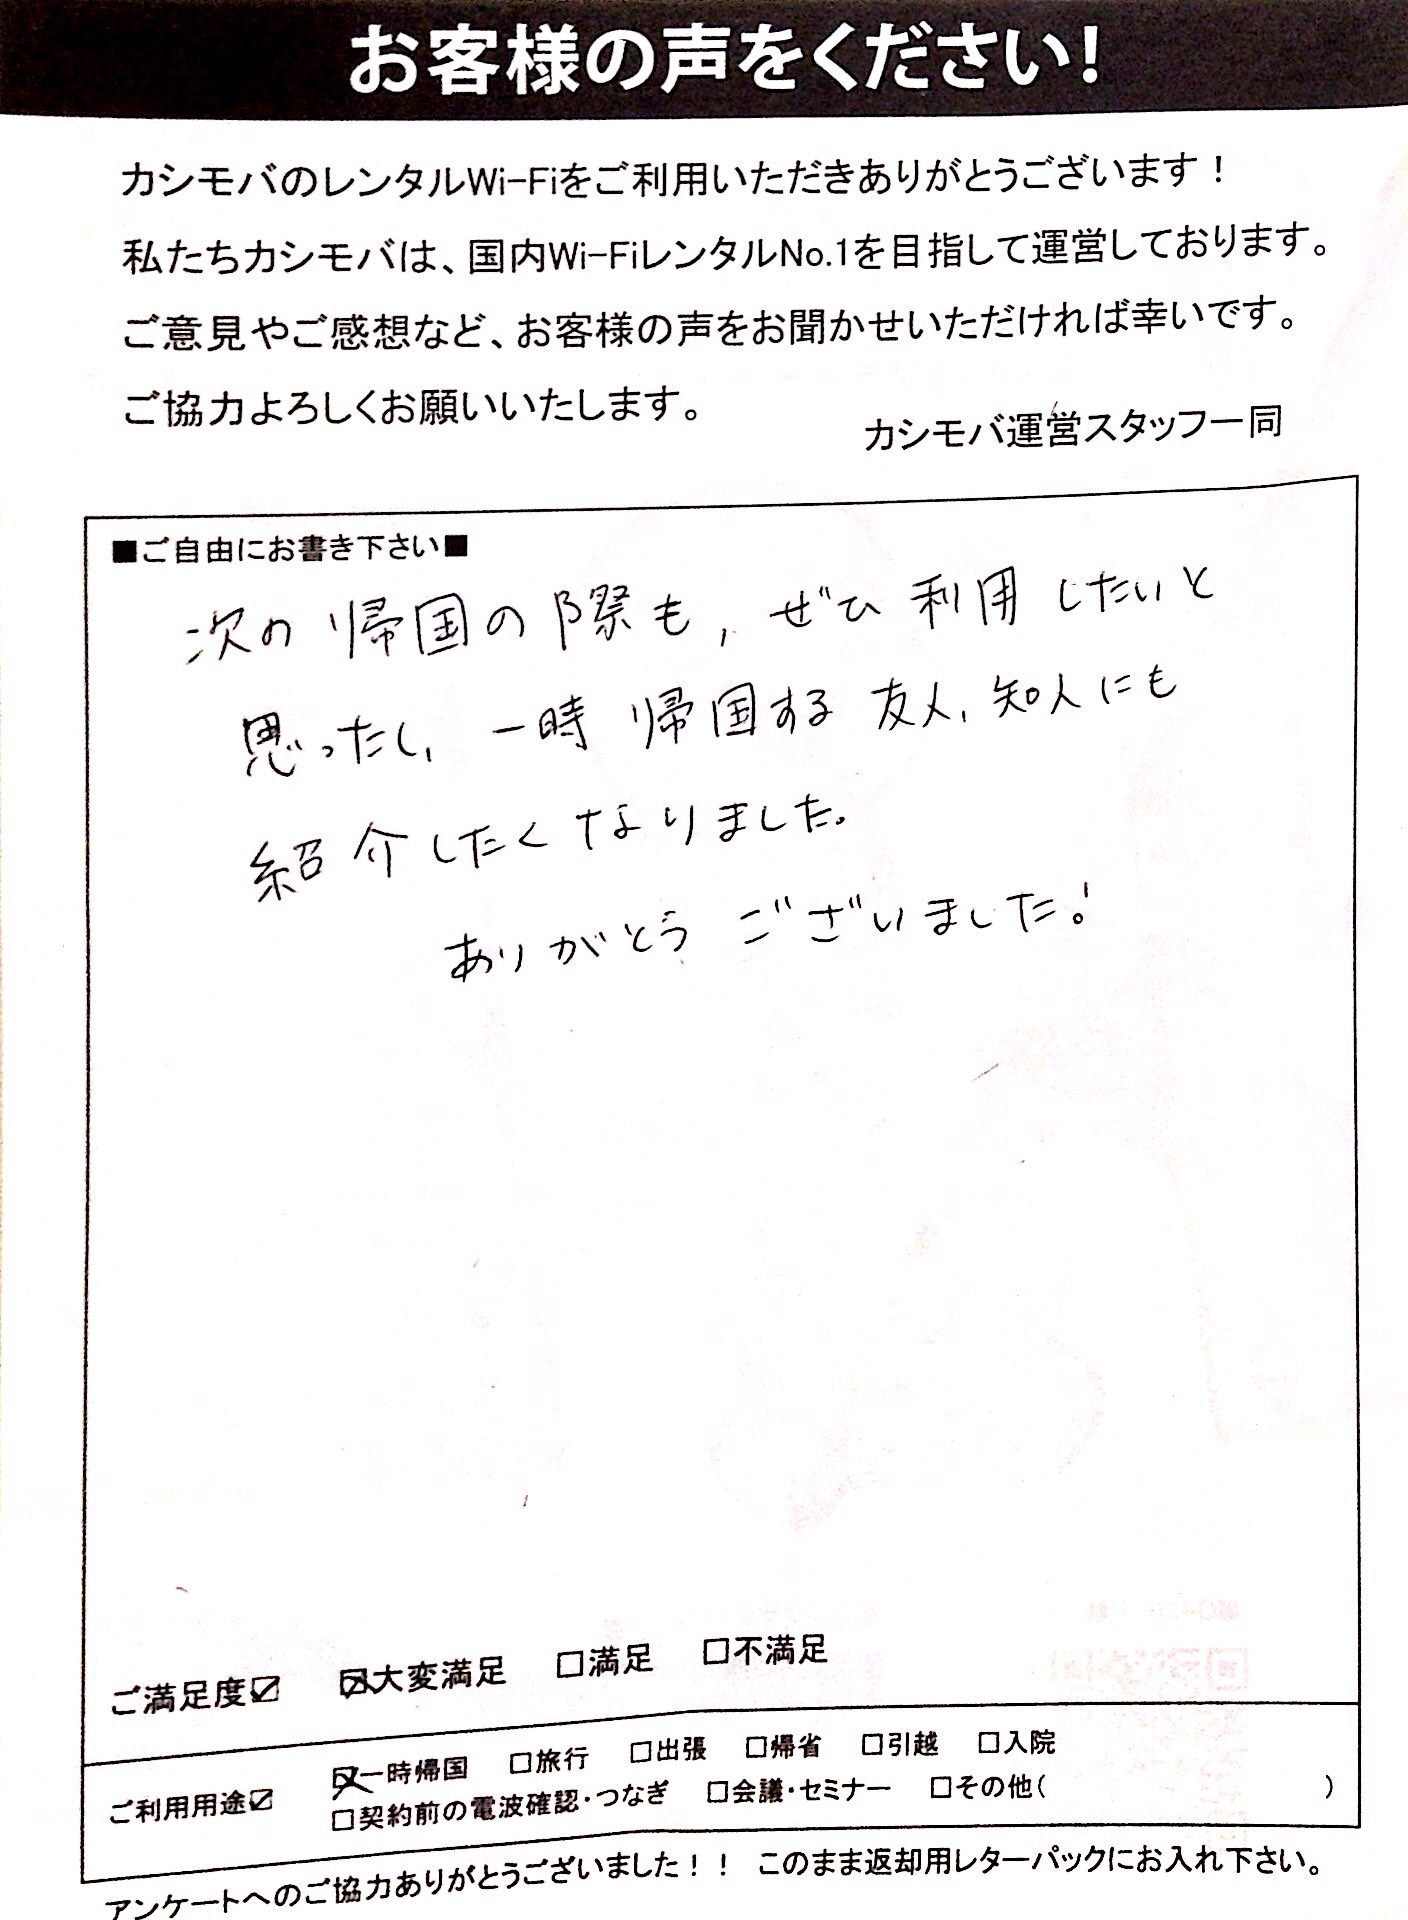 お客様の声をください!
カシモバのレンタルWi-Fiをご利用いただきありがとうございます！
私たちカシモバは、国内Wi-FiレンタルNo.1を目指して運営しております。
ご意見やご感想など、お客様の声をお聞かせいただければ幸いです。
ご協力よろしくお願いいたします。
カシモバ運営スタッフ一同
■ご自由にお書き下さい■
次の帰国の際も、ぜひ利用したいと
思ったし、一時帰国する友人、知人にも
紹介したくなりました。
ありがとうございました！
ご満足度☑ ☒大変満足 □満足 □不満足
ご利用用途☑ ☒一時帰国 □旅行 □出張 □帰省 □引越 □入院
□契約前の電波確認・つなぎ □会議・セミナー □その他( )
アンケートへのご協力ありがとうございました！！ このまま返却用レターパックにお入れ下さい。